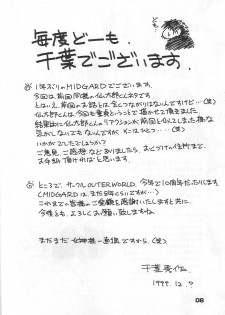 毎度どーも、
千葉でございます。
1年ぶりのMIDGARDでございます。
今回は、前回同様の仏太郎くんネタです。
とはいえ、前回のお話とはまるでつながりはないんですけど…(笑)
仏太郎くんは、今回も童貞ということで描かせていただきました。
結果的に仏太郎くんのリアクションが前回と似てしまった様な
気がしないでもないんですが
いかがでしたでしょうか?
ご意見、ご感想などありましたら、おくづけの住所まで、
お手紙頂ければと思います。
ところで、サークルOUTERWORLD、今年で10周年だったりします。
(MIDGARDはまだ8年くらいですけど…)
これまでの皆様のご愛顧を感謝いたしますと共に、
今後とも、よろしくお願い致しますね。
まだまだ女神様一直線ですから。(笑)
千葉秀作
1999.12.?
06